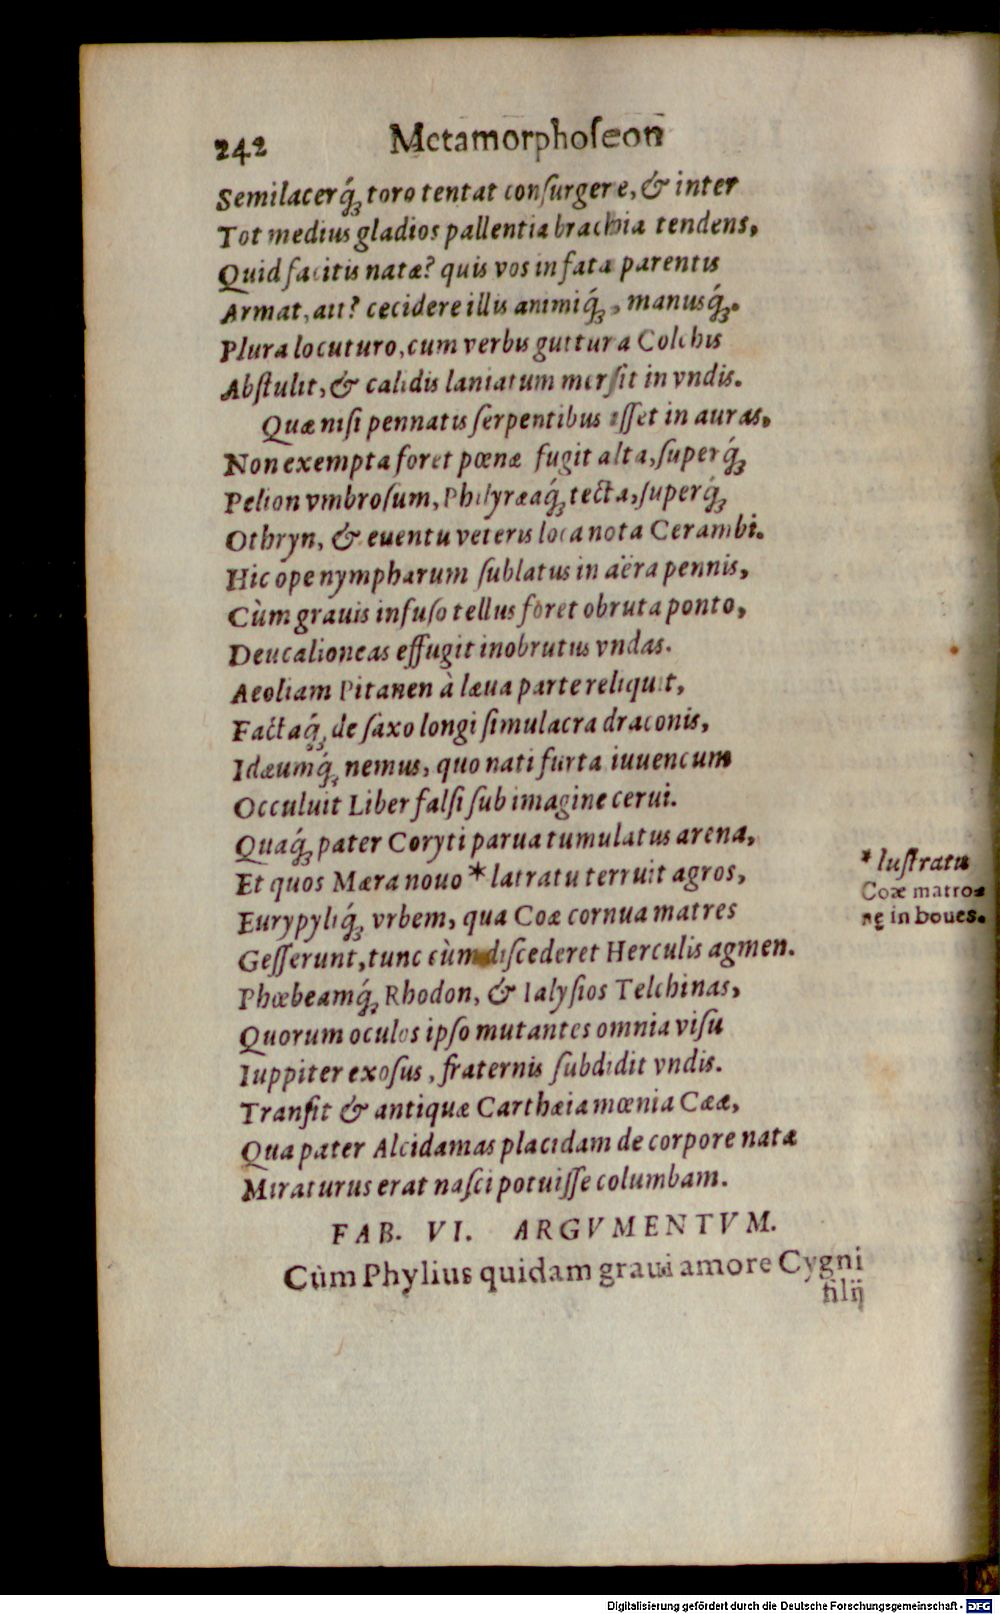 242 Metamorphoſeon
Semilacerq́ꝫ toro tentat conſurgere, & inter
Tot medius gladios pallentia brachia tendens,
Quid facitis natæ? quis vos in fata parentis
Armat, ait? cecidere illis animiq́ꝫ, manusq́ꝫ.
Plura locuturo, cum verbis guttura Colchis
Abſtulit, & calidis laniatum merſit in vndis.
Quæ niſi pennatis ſerpentibus iſſet in auras,
Non exempta foret pœnæ fugit alta, ſuperq́ꝫ
Pelion vmbroſum, Philyræaq́ꝫ tecta, ſuperq́ꝫ
Othryn, & euentu veteris loca nota Cerambi.
Hic ope nympharum ſublatus in aëra pennis,
Cùm grauis infuſo tellus foret obruta ponto,
Deucalioneas effugit inobrutus vndas.
Aeoliam Pitanen à læua parte reliquit,
Factaq́ꝫ de ſaxo longi ſimulacra draconis,
Idæumq́ꝫ nemus, quo nati furta iuuencum
Occuluit Liber falſi ſub imagine cerui.
Quaq́ꝫ pater Coryti parua tumulatus arena,
Et quos Mæra nouo * latratu terruit agros,
Eurypyliq́ꝫ vrbem, qua Coæ cornua matres
Geſſerunt, tunc cùm diſcederet Herculis agmen.
Phœbeamq́ꝫ Rhodon, & Ialyſios Telchinas,
Quorum oculos ipſo mutantes omnia viſu
Iuppiter exoſus, fraternis ſubdidit vndis.
Tranſit & antiquæ Carthæia mœnia Cææ,
Qua pater Alcidamas placidam de corpore natæ
Miraturus erat naſci potuiſſe columbam.
* luſtratu
Coæ matro-
nę in boues.
FAB. VI. ARGVMENTVM.
Cùm Phylius quidam graui amore Cygni
filij
Digitalisierung gefördert durch die Deutsche Forschungsgemeinschaft - DFG